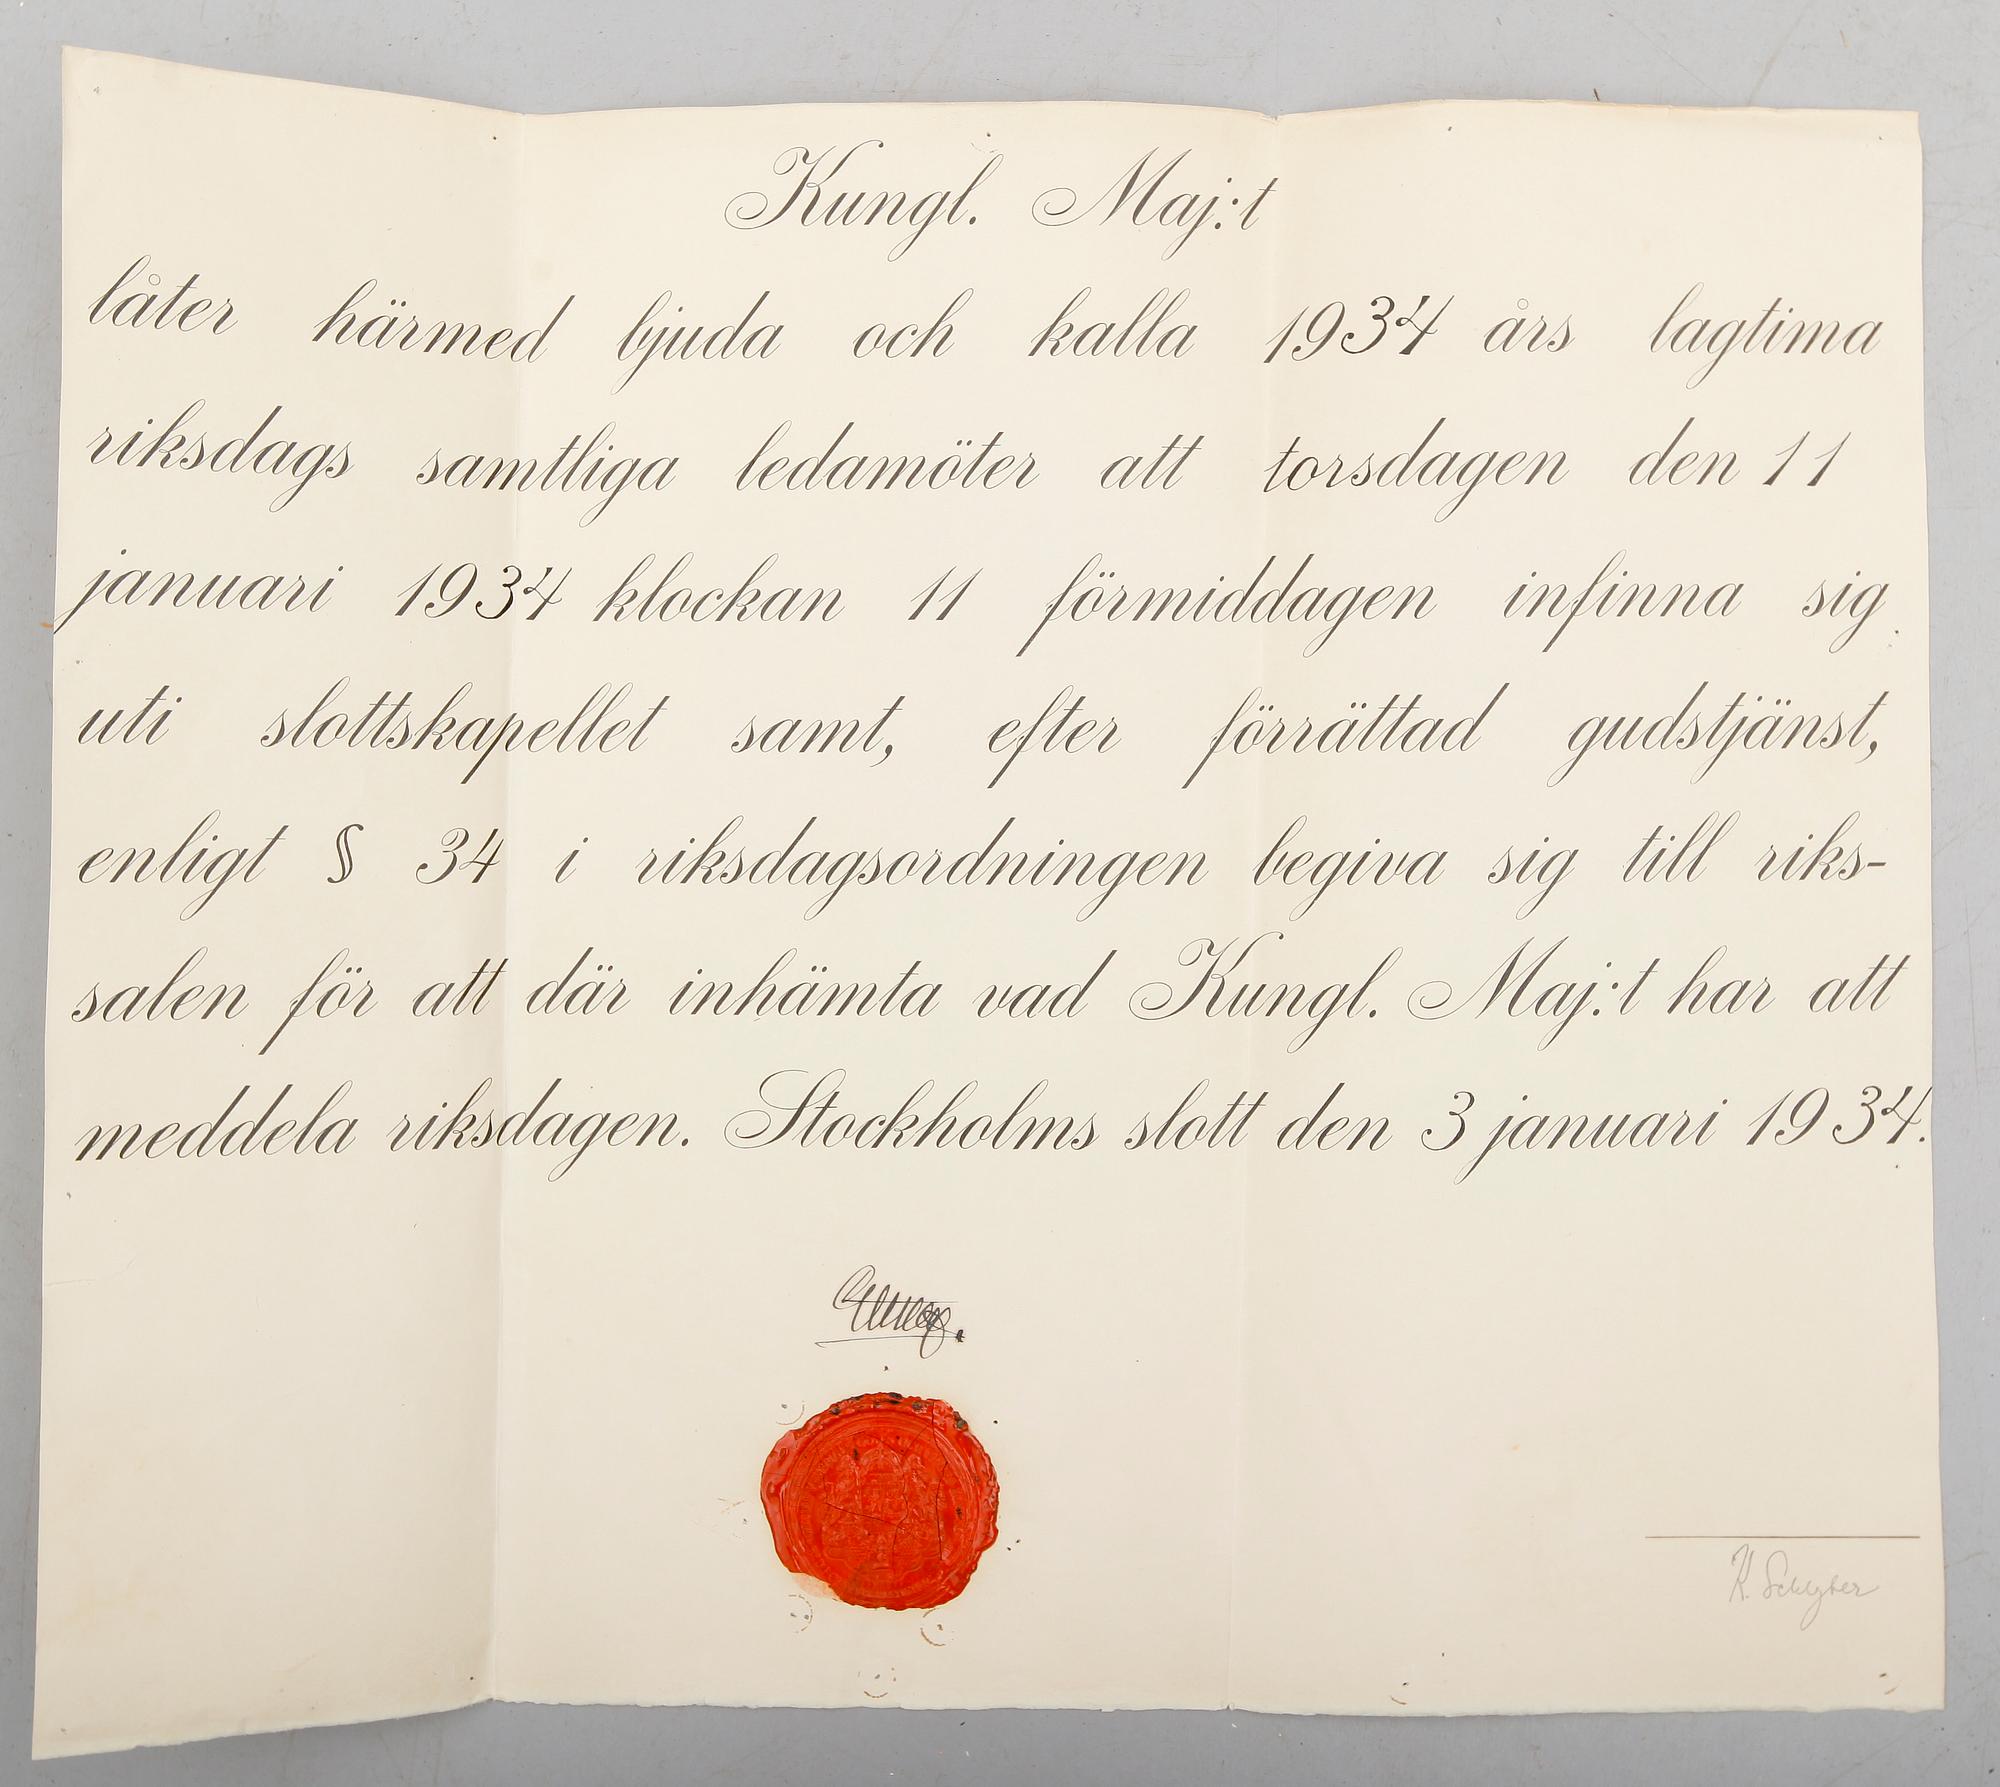 Kungl. Maj:t
låter härmed bjuda och kalla 1934 års lagtima
riksdags samtliga ledamöter att torsdagen den 11
januari 1934 klockan 11 förmiddagen infinna sig
uti slottskapellet samt, efter förrättad gudstjänst,
enligt § 34 i riksdagsordningen begiva sig till riks-
salen för att där inhämta vad Kungl. Maj:t har att
meddela riksdagen. Stockholms slott den 3 januari 1934.
K. Schlyter